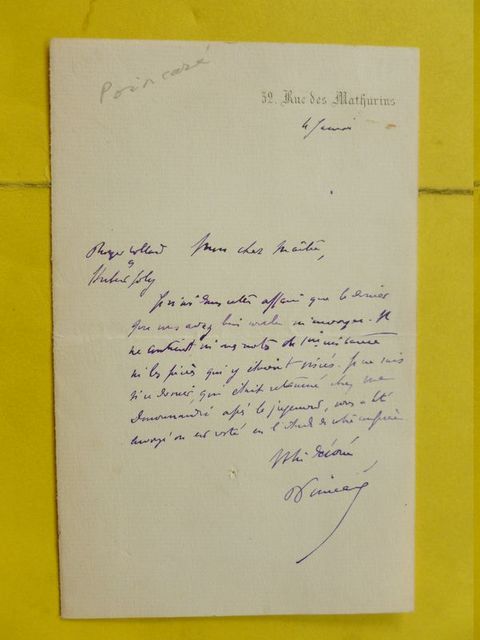 Poincaré
52. Rue des Mathurins
4 Janvier
Mon cher Maître,
Je n'ai dans cette affaire que le dossier
que vous avez bien voulu m'envoyer. Il
ne contient ni mes notes de 1ère instance
ni les pièces qui y étaient visées. Je ne sais
si ce dossier, qui était retourné chez me
après le jugement, vous a été
envoyé ou est resté en l'étude de votre confrère
Votre dévoué
Poincaré